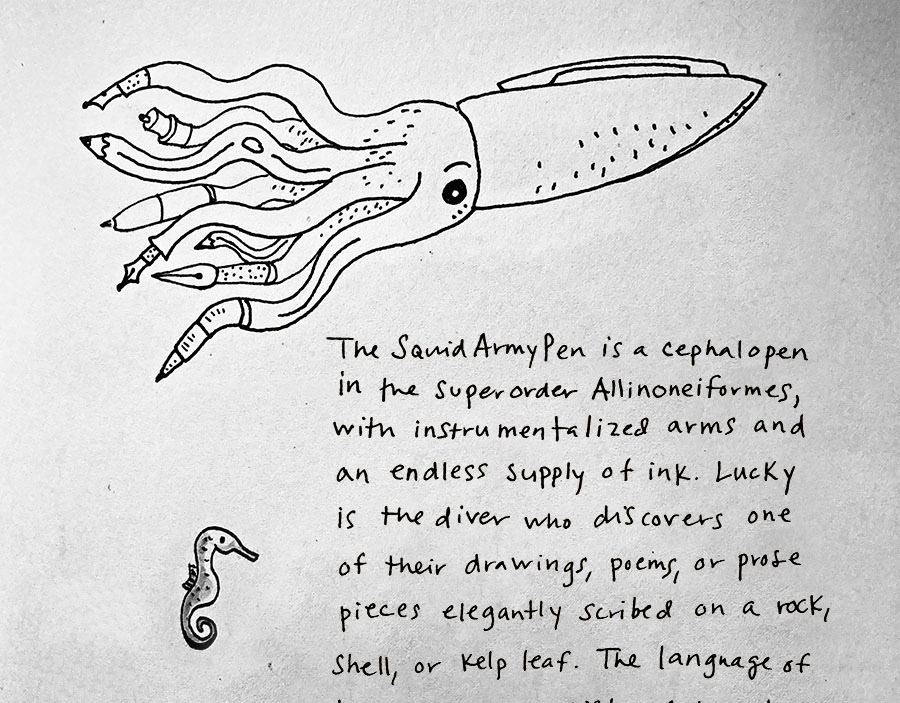 The SquidArmyPen is a cephalopen
in the superorder Allinoneiformes,
with instrumentalized arms and
an endless supply of ink. Lucky
is the diver who discovers one
of their drawings, poems, or prose
pieces elegantly scribed on a rock,
shell, or kelp leaf. The language of